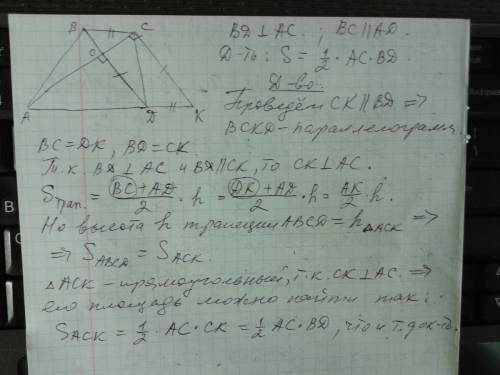 B C
O
A D K
BD ⊥ AC ; BC || AD.
Д-ть: S = 1/2 · AC · BD
Д-во:
Проведём CK || BD ⇒
BCKD - параллелограмм,
BC = DK, BD = CK
Т.к. BD ⊥ AC и BD || CK, то CK ⊥ AC.
Sтрап. = (BC + AD)/2 · h = (DK + AD)/2 · h = AK/2 · h.
Но высота h трапеции ABCD = h△ACK ⇒
⇒ SABCD = SACK.
△ACK - прямоугольный, т.к. CK ⊥ AC. ⇒
его площадь можно найти так:
SACK = 1/2 · AC · CK = 1/2 AC · BD, что и т. док-ть.